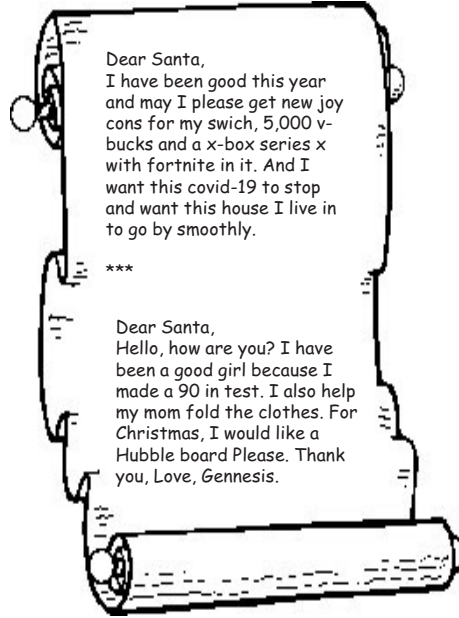 Dear Santa,
I have been good this year
and may I please get new joy
cons for my swich, 5,000 v-
bucks and a x-box series x
with fortnite in it. And I
want this covid-19 to stop
and want this house I live in
to go by smoothly.
***
Dear Santa,
Hello, how are you? I have
been a good girl because I
made a 90 in test. I also help
my mom fold the clothes. For
Christmas, I would like a
Hubble board Please. Thank
you, Love, Gennesis.